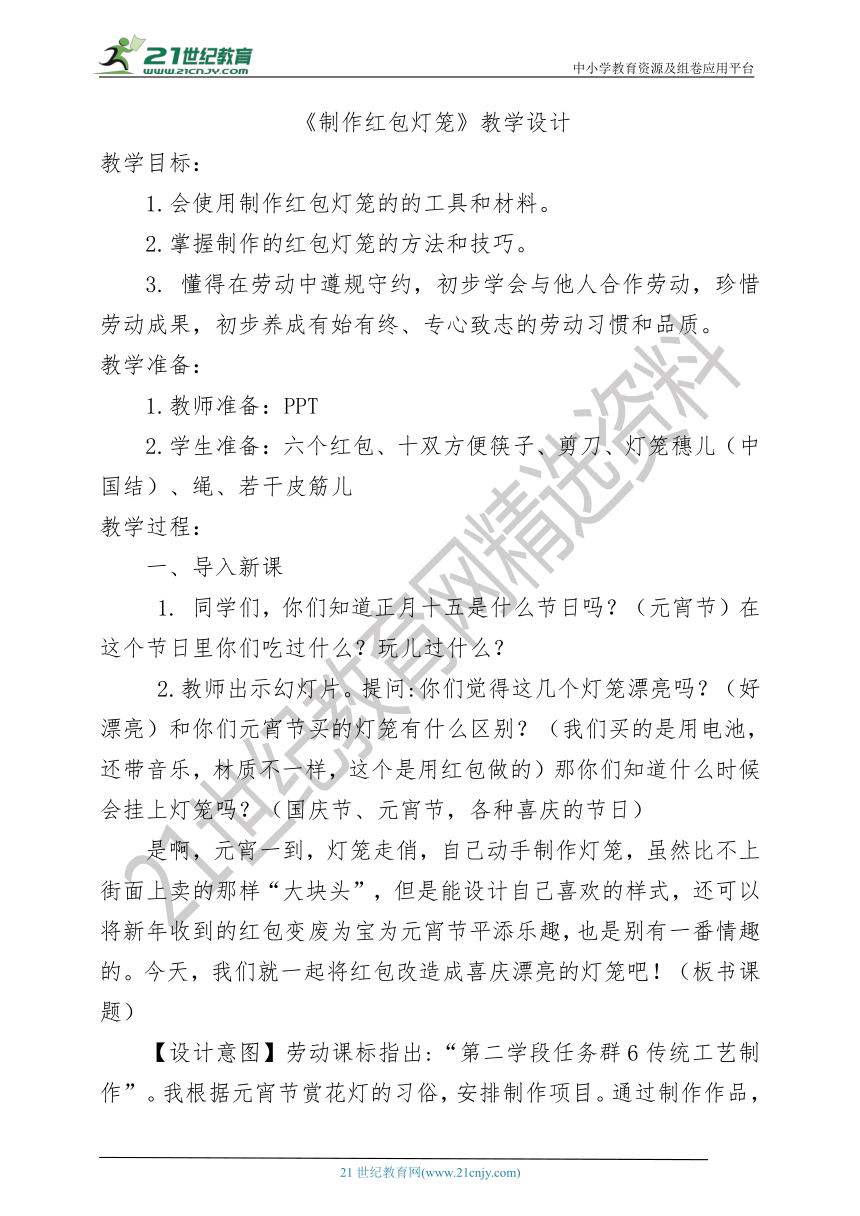 21世纪教育
WWW.21CNJY.COM
中小学教育资源及组卷应用平台
《制作红包灯笼》教学设计
教学目标：
1.会使用制作红包灯笼的的工具和材料。
2.掌握制作的红包灯笼的方法和技巧。
3. 懂得在劳动中遵规守约，初步学会与他人合作劳动，珍惜
劳动成果，初步养成有始有终、专心致志的劳动习惯和品质。
教学准备：
1.教师准备：PPT
2.学生准备：六个红包、十双方便筷子、剪刀、灯笼穗儿（中
国结）、绳、若干皮筋儿
教学过程：
一、导入新课
1. 同学们，你们知道正月十五是什么节日吗？（元宵节）在
这个节日里你们吃过什么？玩儿过什么？
2.教师出示幻灯片。提问:你们觉得这几个灯笼漂亮吗？（好
漂亮）和你们元宵节买的灯笼有什么区别？（我们买的是用电池，
还带音乐，材质不一样，这个是用红包做的）那你们知道什么时候
会挂上灯笼吗？（国庆节、元宵节，各种喜庆的节日）
是啊，元宵一到，灯笼走俏，自己动手制作灯笼，虽然比不上
街面上卖的那样“大块头”，但是能设计自己喜欢的样式，还可以
将新年收到的红包变废为宝为元宵节平添乐趣，也是别有一番情趣
的。今天，我们就一起将红包改造成喜庆漂亮的灯笼吧！（板书课
题）
【设计意图】劳动课标指出：“第二学段任务群6传统工艺制
作”。我根据元宵节赏花灯的习俗，安排制作项目。通过制作作品，
21世纪教育网精选资料
21世纪教育网(www.21cnjy.com)